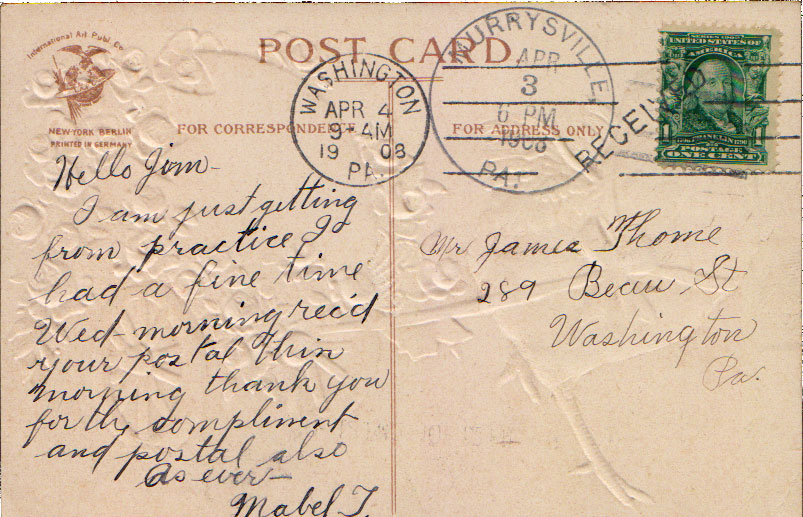 International Art Publ. Co.
NEW-YORK BERLIN
PRINTED IN GERMANY
POST CARD
FOR CORRESPONDENCE
FOR ADDRESS ONLY
WASHINGTON
APR 4
9 - AM
1908
PA.
MURRYSVILLE,
APR
3
6 PM
1908
PA.
RECEIVED
UNITED STATES OF
AMERICA
POSTAGE
ONE CENT
Hello Jim -
I am just getting
from practice I
had a fine time
Wed - morning rec'd
your postal this
morning thank you
for the compliment
and postal also
As ever -
Mabel T.
Mr James Thome
289 Beau St
Washington
Pa.